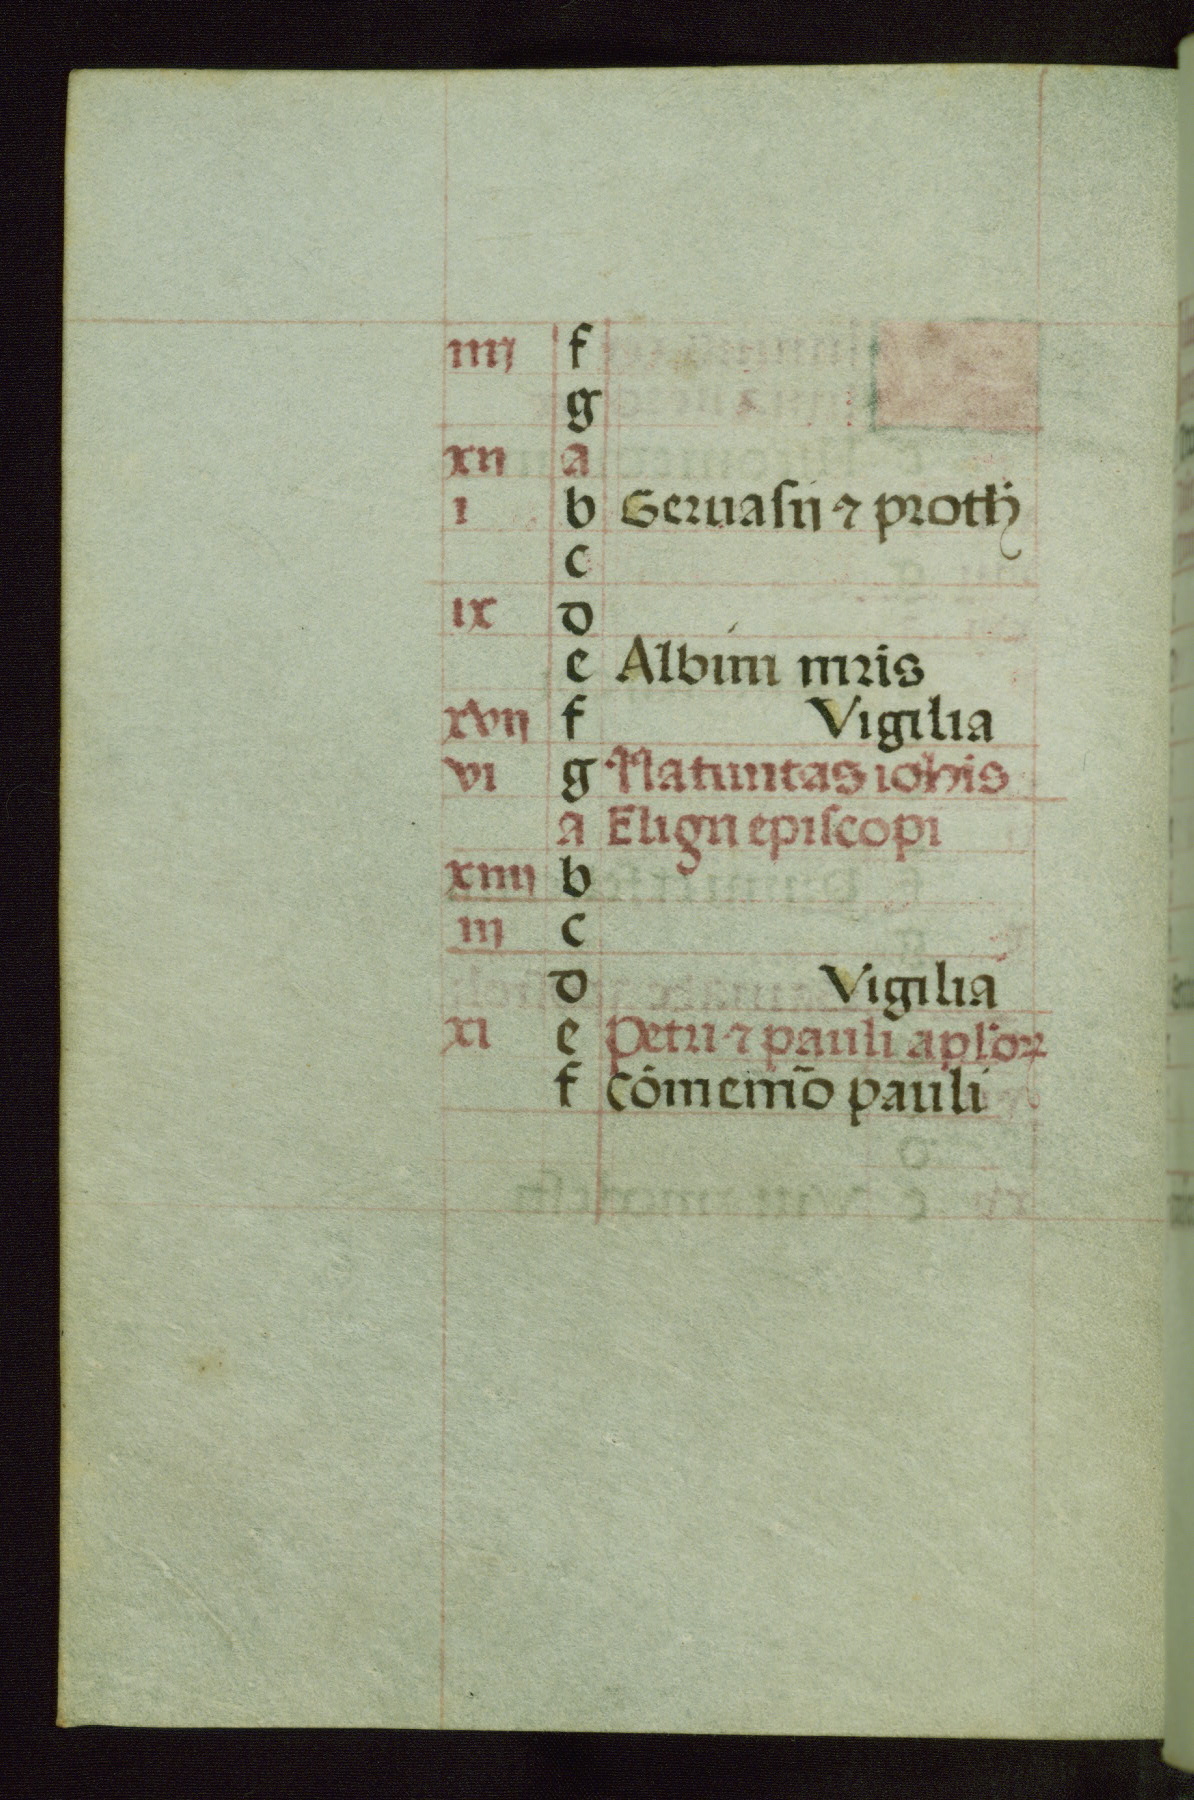 iiij f
g
xij a
i b Geruasii ⁊ proth
c
ix d
e Albini mris
xvij f Vigilia
vi g Natiuitas iohis
a Eligii episcopi
xiiij b
iij c
d Vigilia
xi e Petri ⁊ pauli aplorꝝ
f cōmemō pauli